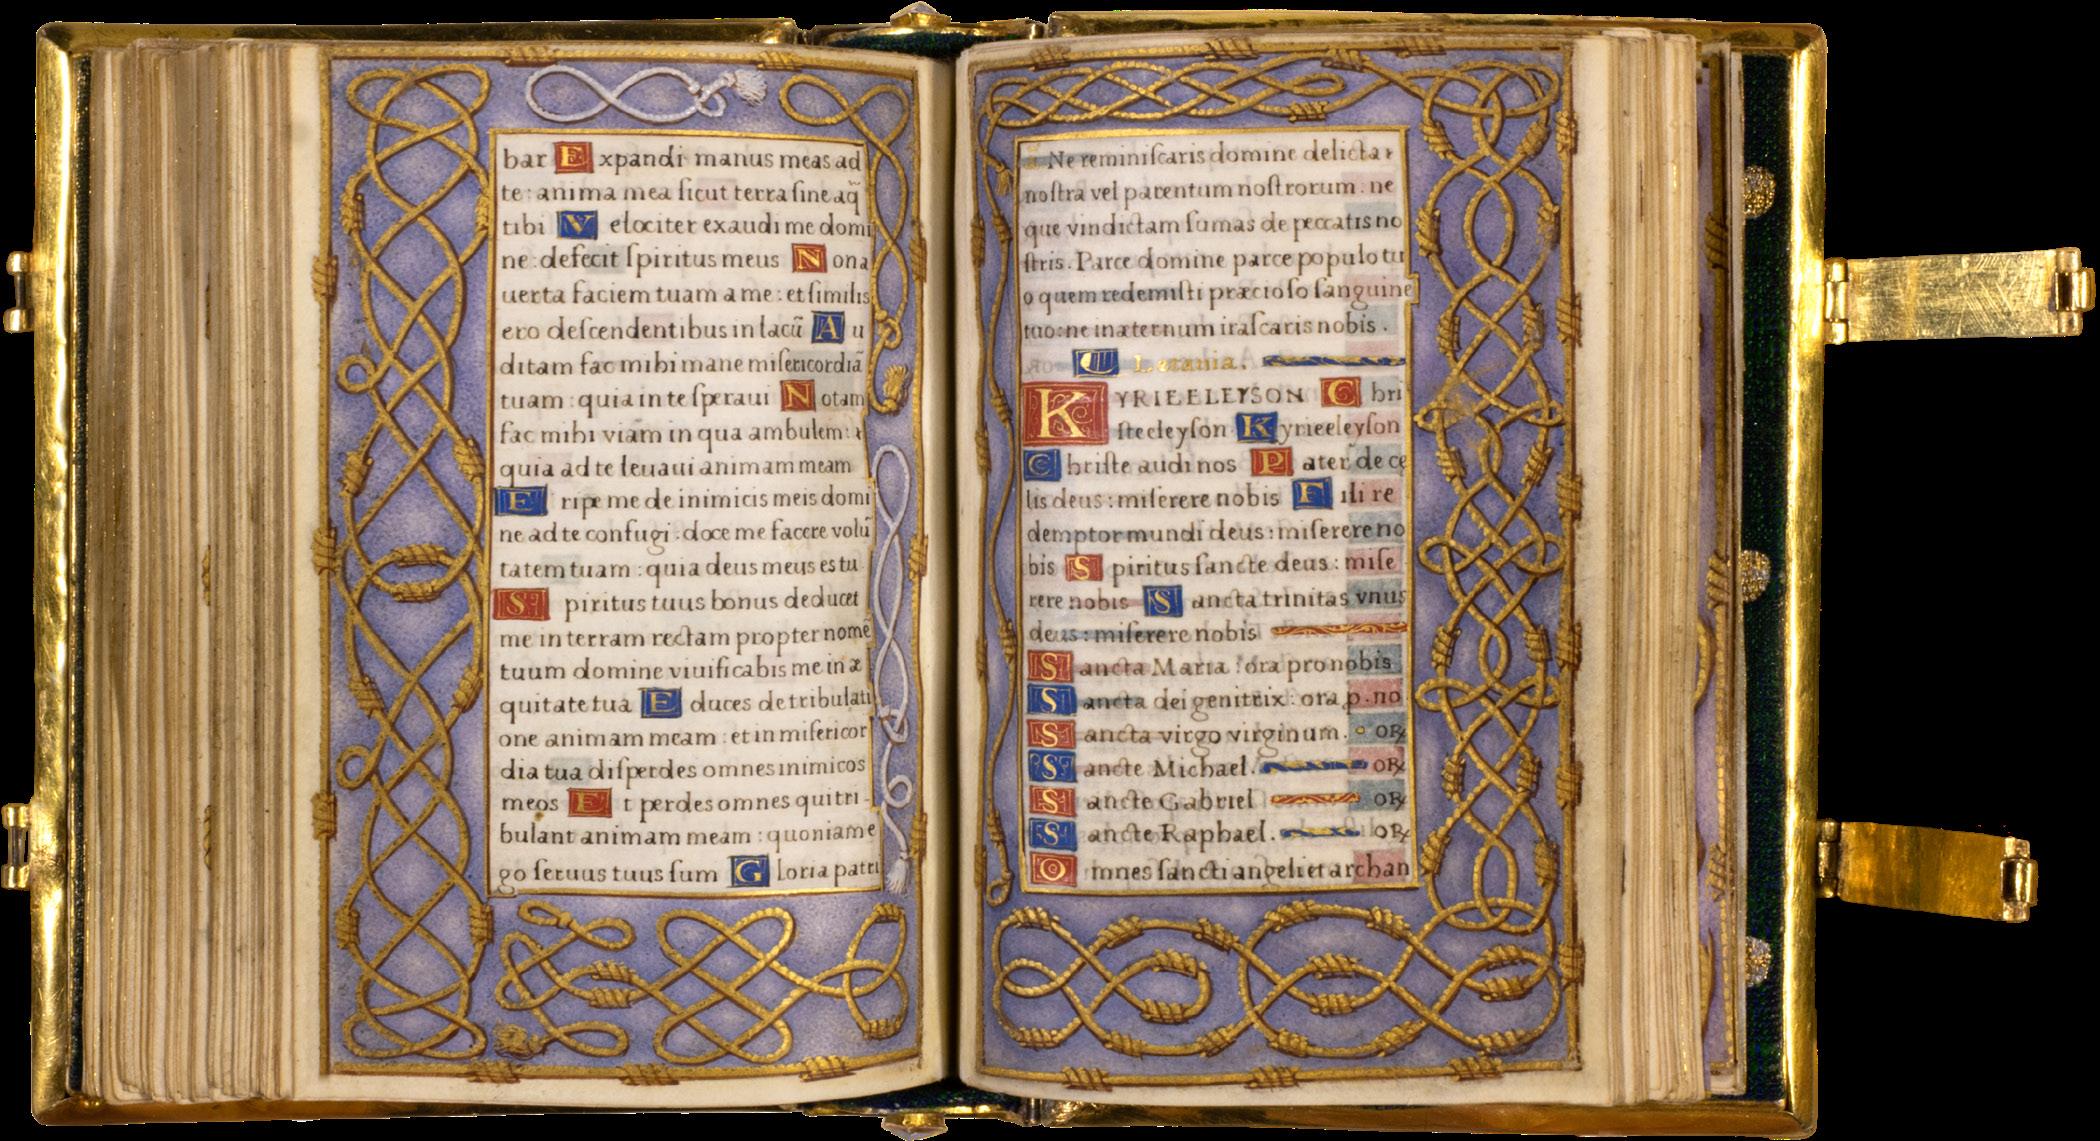 bar Expandi manus meas ad
te: anima mea ſicut terra ſine aq̃
tibi Velociter exaudi me domi
ne: defecit ſpiritus meus Non a
uerta faciem tuam a me: et ſimilis
ero deſcendentibus in lacũ Au
ditam fac mihi mane miſericordiã
tuam: quia in te ſperaui Notam
fac mihi viam in qua ambulem:
quia ad te leuaui animam meam
Eripe me de inimicis meis domi
ne ad te confugi: doce me facere volũ
tatem tuam: quia deus meus es tu
Spiritus tuus bonus deducet
me in terram rectam propter nomẽ
tuum domine viuificabis me in æ
quitate tua Educes de tribulati
one animam meam: et in miſericor
dia tua diſperdes omnes inimicos
meos Et perdes omnes qui tri-
bulant animam meam: quoniam e
go ſeruus tuus ſum Gloria patri
Ne reminiſcaris domine delicta
noſtra vel parentum noſtrorum: ne
que vindictam ſumas de peccatis no
ſtris. Parce domine parce populo tu
o quem redemiſti præcioſo ſanguine
tuo: ne in æternum iraſcaris nobis.
Letania.
KYRIEELEYSON Chri
ſteeleyſon Kyrieeleyſon
Chriſte audi nos Pater de ce
lis deus: miſerere nobis Fili re
demptor mundi deus: miſerere no
bis Spiritus ſancte deus: miſe
rere nobis Sancta trinitas vnus
deus: miſerere nobis
Sancta Maria: ora pro nobis
Sancta dei genitrix: ora p. no
Sancta virgo virginum. oR
Sancte Michael. oR
Sancte Gabriel oR
Sancte Raphael. oR
Omnes ſancti angeli et archan